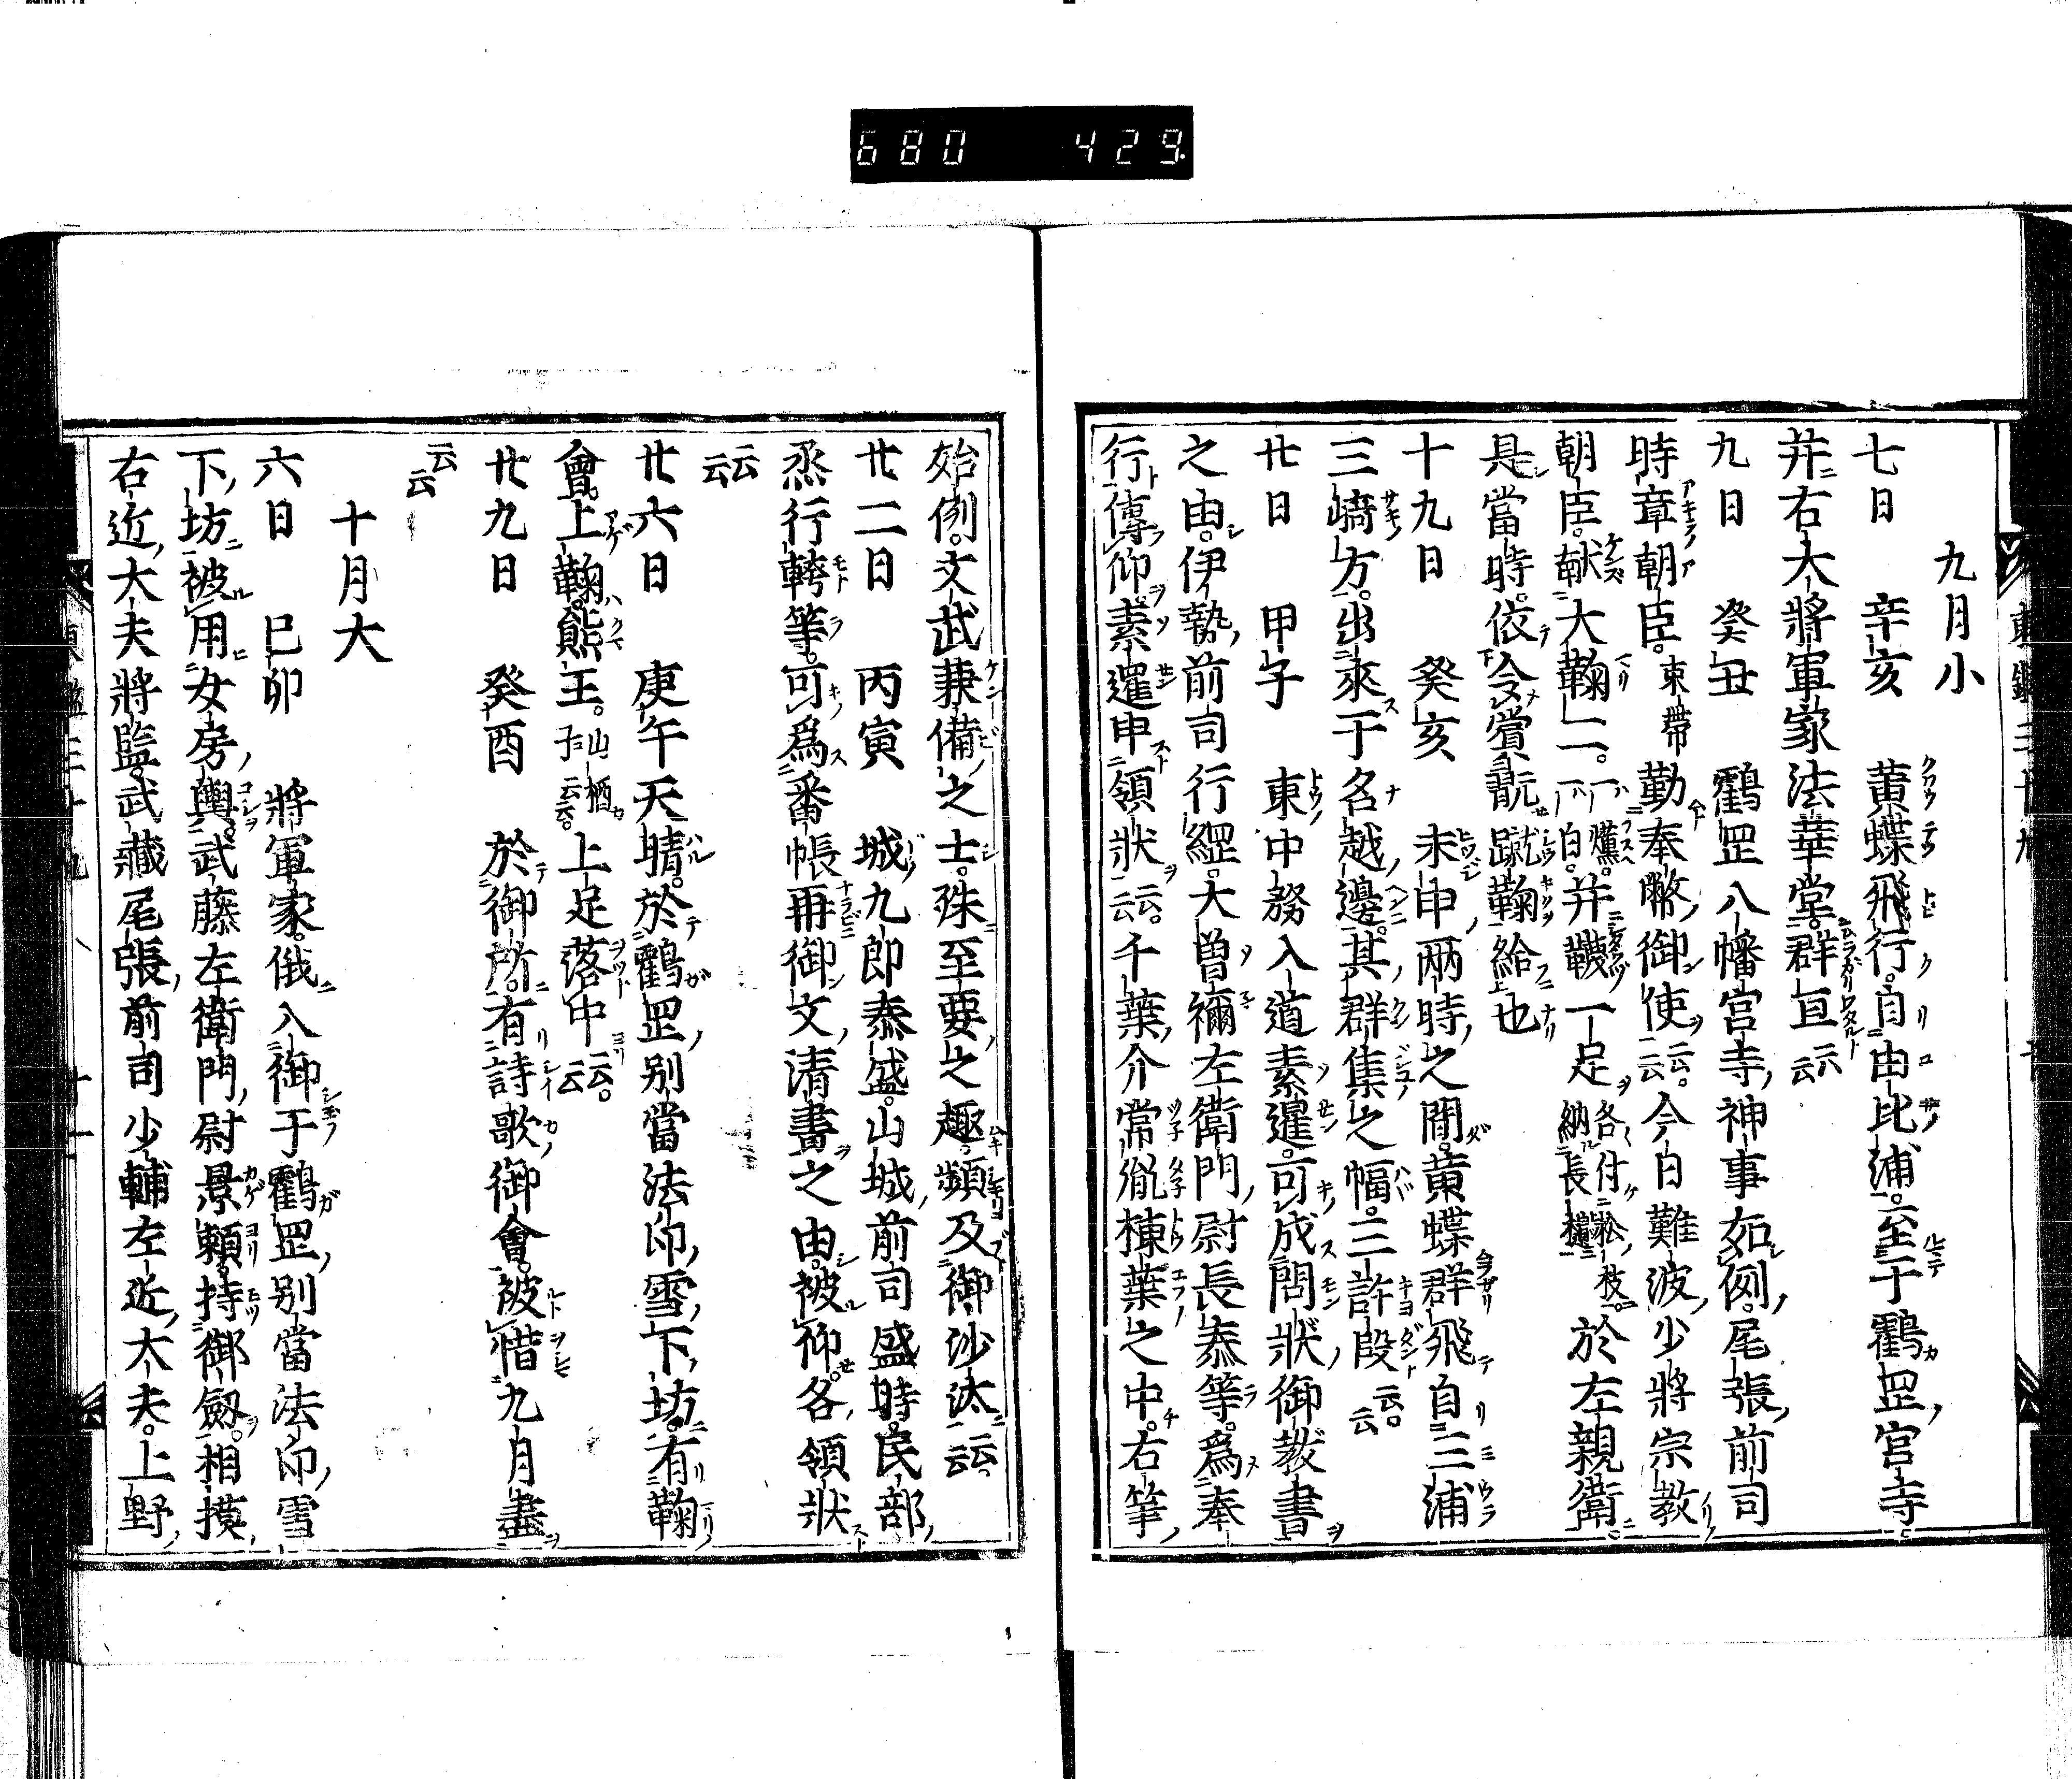 680 429
九月小
七日 辛亥 黄蝶飛行。自由比浦。至于鶴罡宮寺。
并右大將軍家法華堂。群亘云云
九日 癸丑 鶴罡八幡宮寺神事如例。尾張前司
時章朝臣。束帶勤奉幣御使云云。今日難波少將宗教
朝臣。献大鞠二。一燻。一白。并韈一足各付松枝。納長櫃於左親衛。
是當時。依令賞翫蹴鞠給也
十九日 癸亥 未申兩時之間。黄蝶群飛自三浦
三﨑方。出來于名越邊。其群集之幅。三許段云云。
廿日 甲子 東中務入道素暹。可成問狀御教書
之由。伊勢前司行綱。大曽禰左衛門尉長泰等。爲奉
行傳仰。素暹申領狀云云。千葉介常胤棟葉之中。右筆
始例。文武兼備之士。殊至要之趣。頻及御沙汰云云。
廿二日 丙寅 城九郎泰盛。山城前司盛時。民部
烝行幹等。可爲番帳再御文清書之由。被仰。各領狀
云云
廿六日 庚午天晴。於鶴罡別當法印雪下坊。有鞠
會。上鞠。熊王。山栖子云云。上足落中云云。
廿九日 癸酉 於御所。有詩歌御會。被惜九月盡
云云
十月大
六日 己卯 將軍家。俄入御于鶴罡別當法印雪
下坊。被用女房輿。武藤左衛門尉景頼。持御劔。相摸
右近大夫將監。武藏尾張前司少輔左近大夫。上野